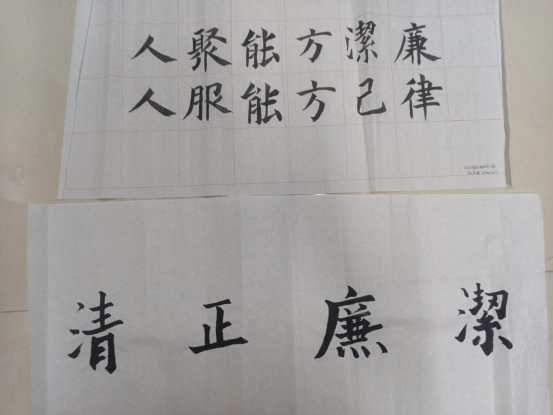 廉潔方能聚人
律己方能服人
清正廉潔